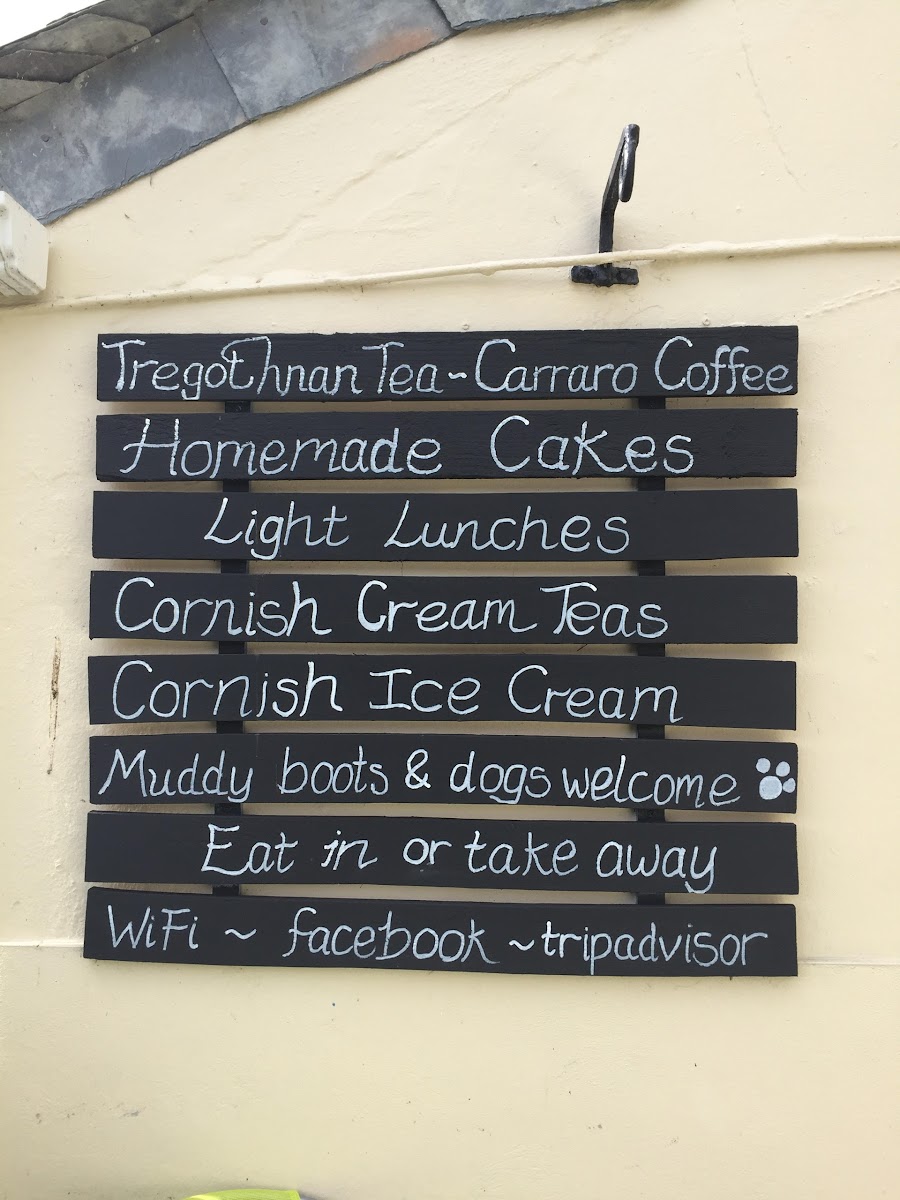 Tregothnan Tea ~ Carraro Coffee
Homemade Cakes
Light Lunches
Cornish Cream Teas
Cornish Ice Cream
Muddy boots & dogs welcome
Eat in or take away
WiFi ~ facebook ~ tripadvisor